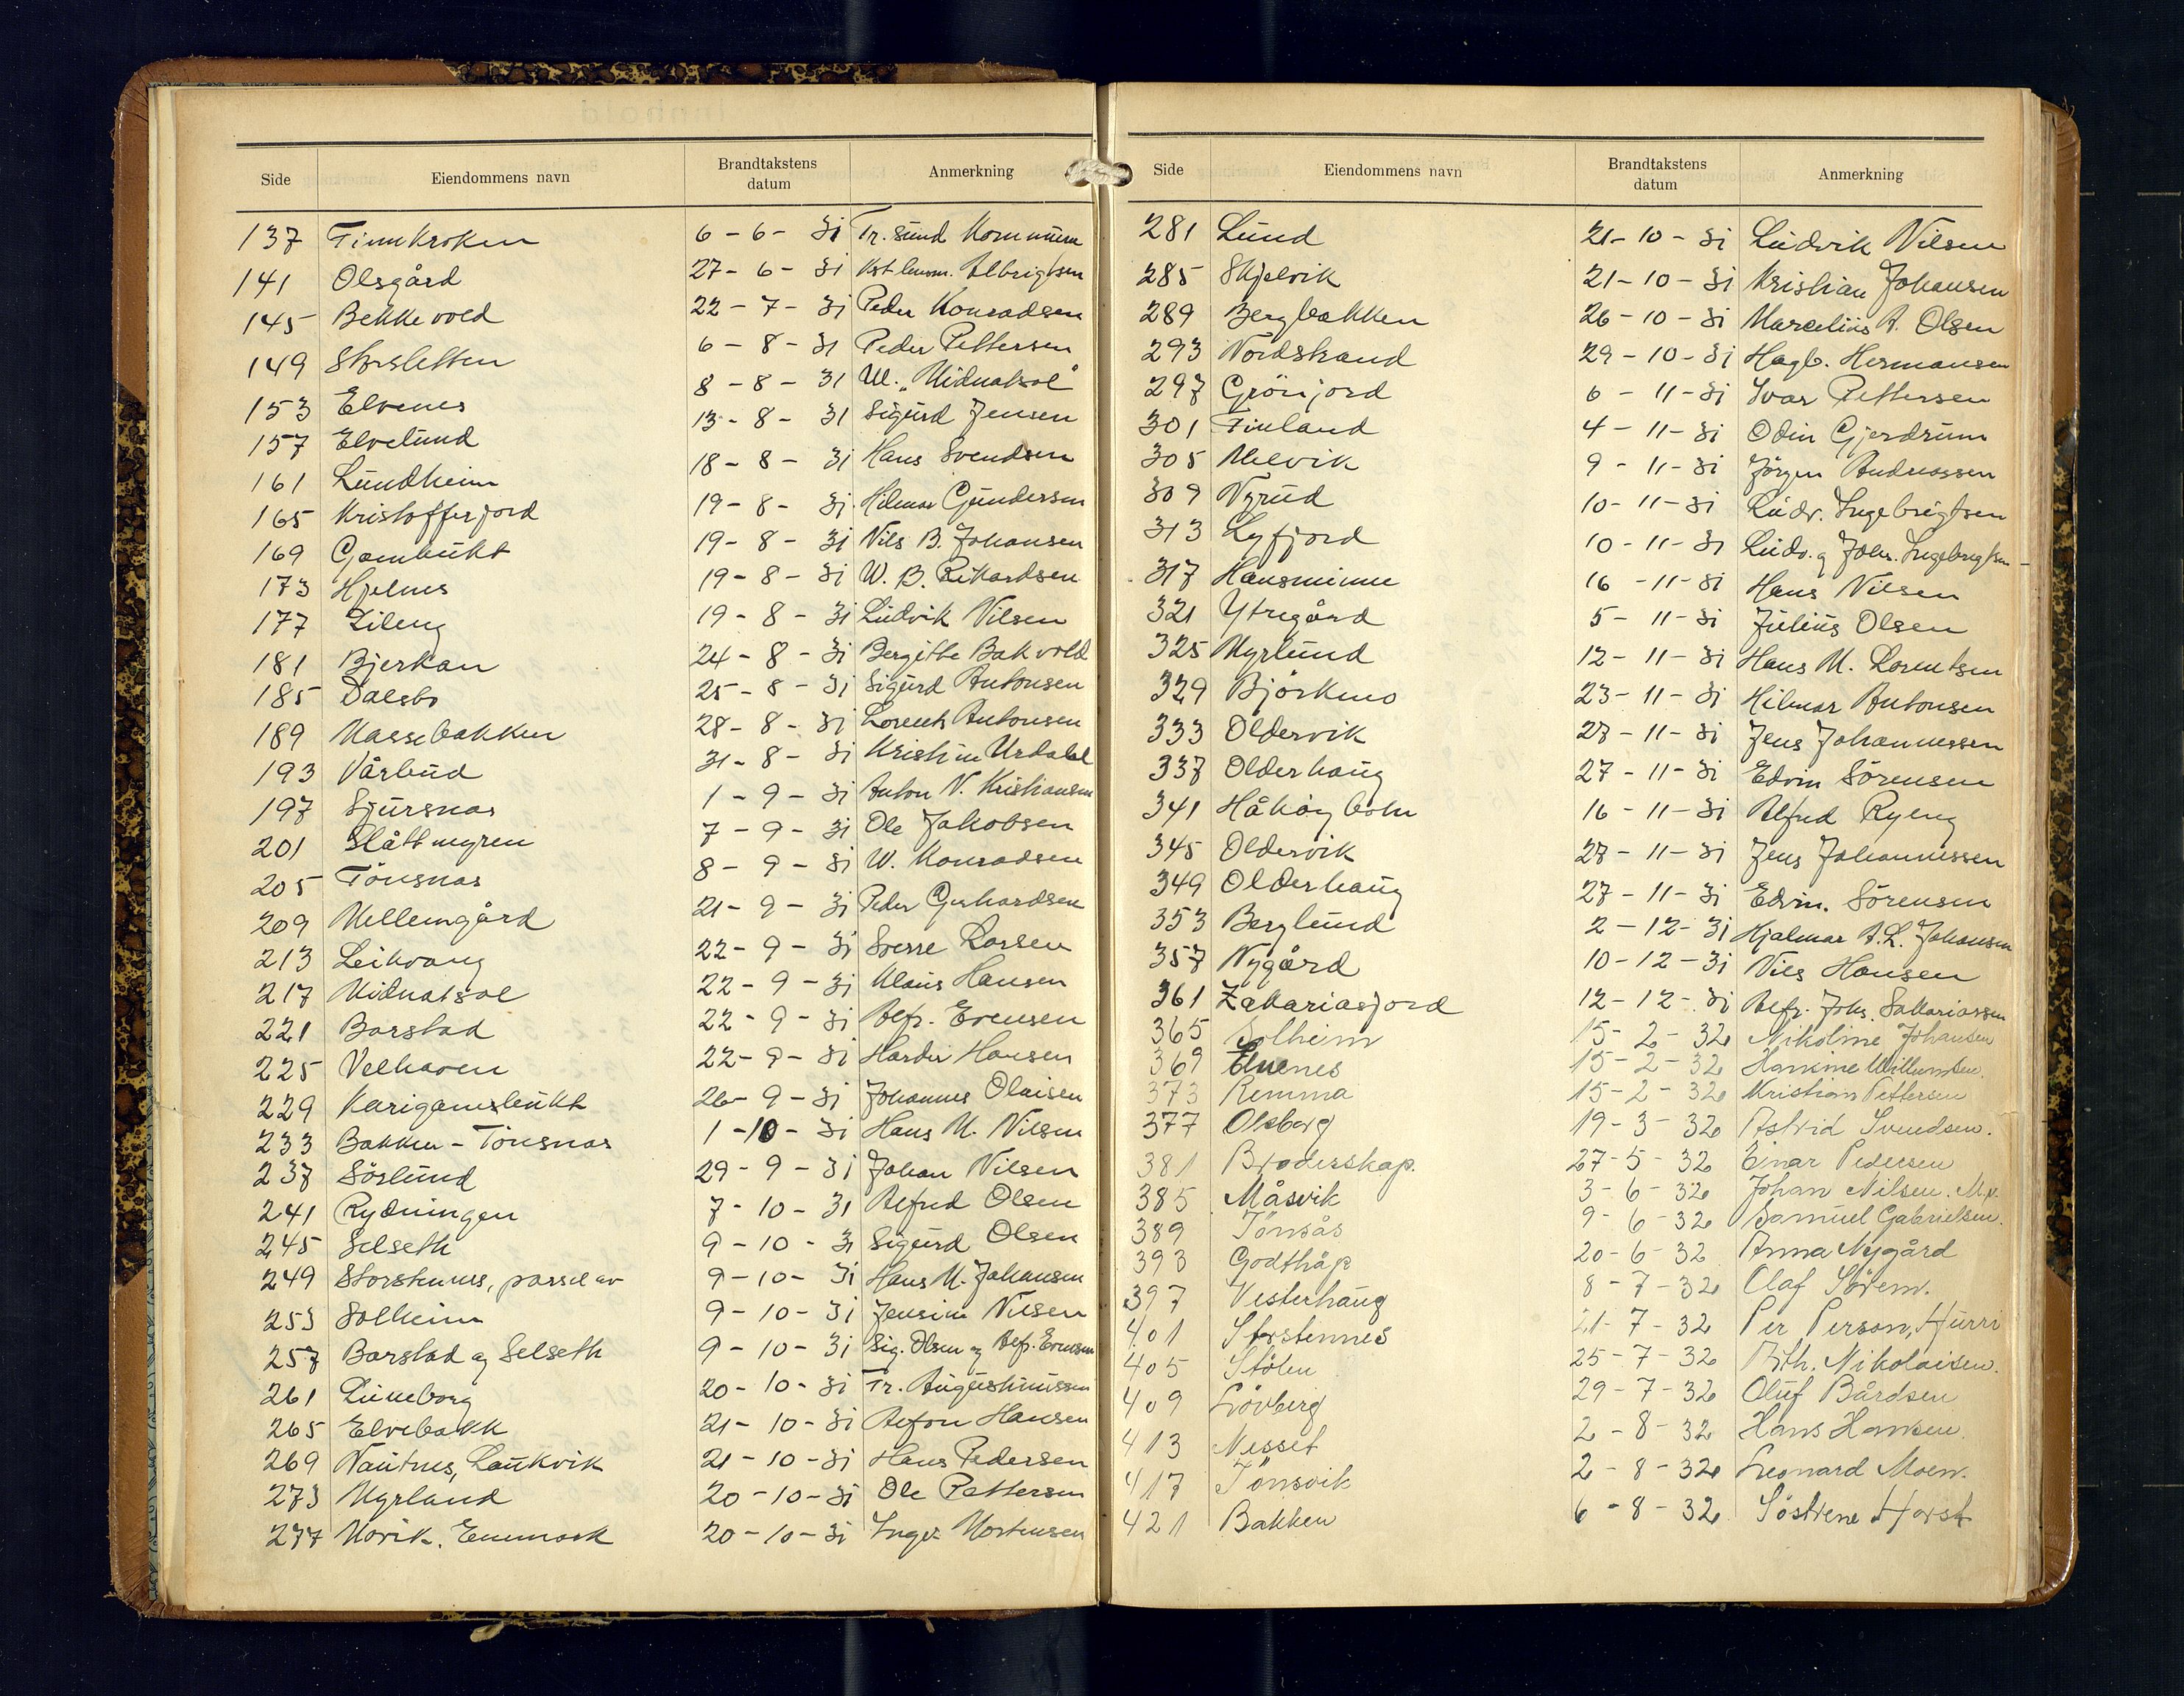 Side Eiendommens navn Brandtakstens datum Anmerkning
137 Finnkroken 6-6-31 Tr.sund Kommune
141 Olsgård 27-6-31 Albrigtsen
145 Bekkevold 22-7-31 Peder Konradsen
149 Storsletten 6-8-31 Peder Pettersen
153 Elvenes 8-8-31 U.l. „Midnatsol"
157 Elvelund 13-8-31 Sigurd Jensen
161 Lundheim 18-8-31 Hans Svendsen
165 Kristofferjord 19-8-31 Hilmar Gundersen
169 Gambukt 19-8-31 Nils B. Johansen
173 Hjelnes 19-8-31 W. B. Rikardsen
177 Lileng 19-8-31 Ludvik Nilsen
181 Bjerkan 24-8-31 Bergitte Bakvold
185 Dalsbo 25-8-31 Sigurd Antonsen
189 Massebakken 28-8-31 Lorentz Antonsen
193 Vårbud 31-8-31 Kristine Urdahl
197 Sjursnas 1-9-31 Anton N. Kristiansen
201 Slåttmyren 7-9-31 Ole Jakobsen
205 Tönsnas 8-9-31 W. Konradsen
209 Mellemgård 21-9-31 Peder Gerhardsen
213 Leikvang 22-9-31 Sverre Larsen
217 Midnatsol 22-9-31 Klaus Hansen
221 Barstad 22-9-31 Alfr. Evensen
225 Velhaven 22-9-31 Harder Hansen
229 Karigamsbukt 26-9-31 Johannes Olaisen
233 Bakken - Tönsnas 1-10-31 Hans M. Nilsen
237 Sörlund 29-9-31 Johan Nilsen
241 Rydningen 7-10-31 Alfred Olsen
245 Selseth 9-10-31 Sigurd Olsen
249 Storstennes, parsel av 9-10-31 Hans M. Johansen
253 Solheim 9-10-31 Jensine Nilsen
257 Barstad og Selseth 9-10-31 Sig. Olsen og Alfr. Evensen
261 Luneborg 20-10-31 Tr. Augustinussen
265 Elvebakk 21-10-31 Alfon Hansen
269 Nautnes, Laukvik 21-10-31 Hans Pedersen
273 Myrland 20-10-31 Ole Pettersen
277 Movik. Enmark 20-10-31 Inger Mortensen
Side Eiendommens navn Brandtakstens datum Anmerkning
281 Lund 21-10-31 Ludvik Nilsen
285 Skjelvik 21-10-31 Kristian Johansen
289 Bergbakken 26-10-31 Marcelius A. Olsen
293 Nordstrand 29-10-31 Hagb. Hermansen
297 Grönjord 6-11-31 Ivar Pettersen
301 Finland 4-11-31 Odin Gjerdrum
305 Melvik 9-11-31 Jörgen Andreassen
309 Nyrud 10-11-31 Ludv. Ingebrigtsen
313 Lyfjord 10-11-31 Ludv. og Johs. Ingebrigtsen
317 Hansminne 16-11-31 Hans Nilsen
321 Ytregård 5-11-31 Julius Olsen
325 Myrlund 12-11-31 Hans M. Lorentsen
329 Björkmo 23-11-31 Hilmar Antonsen
333 Oldervik 27-11-31 Jens Johannessen
337 Olderhaug 27-11-31 Edvin Sörensen
341 Håköybotn 16-11-31 Alfred Ryeng
345 Oldervik 27-11-31 Jens Johannessen
349 Olderhaug 27-11-31 Edvin. Sörensen
353 Berglund 2-12-31 Hjalmar A.L. Johansen
357 Nygård 10-12-31 Nils Hansen
361 Zakariasjord 12-12-31 Alfr. Johs. Sakariassen
365 Solheim 15-2-32 Nikoline Johansen
369 Elvenes 15-2-32 Hanine Willumsen.
373 Remma 15-2-32 Kristian Pettersen
377 Olsborg 19-3-32 Astrid Svendsen.
381 Broderskap. 27-5-32 Einar Pedersen
385 Måsvik 3-6-32 Johan Nilsen. M.v.
389 Tönsås 9-6-32 Samuel Gabrielsen.
393 Godthåp 20-6-32 Anna Nygård
397 Vesterhaug 8-7-32 Olaf Sörem.
401 Storstennes 21-7-32 Per Person, Hurri
405 Stölen 25-7-32 Nikolaisen.
409 Lövberg 29-7-32 Oluf Bårdsen
413 Nesset 2-8-32 Hans Hansen.
417 Tönsvik 2-8-32 Leonard Moen.
421 Bakken 6-8-32 Söstrene Horst